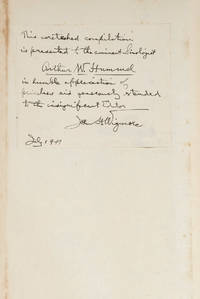 This wretched compilation
is presented to the eminent Sinologist
Arthur W Hummel
in humble appreciation of
priceless aid generously extended
to the insignificant Editor
John H Wigmore
July 1941